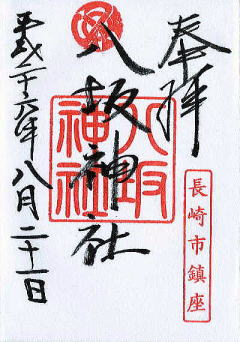 奉拝
長崎市鎮座
八坂神社
八坂神社
平成二十六年八月二十一日